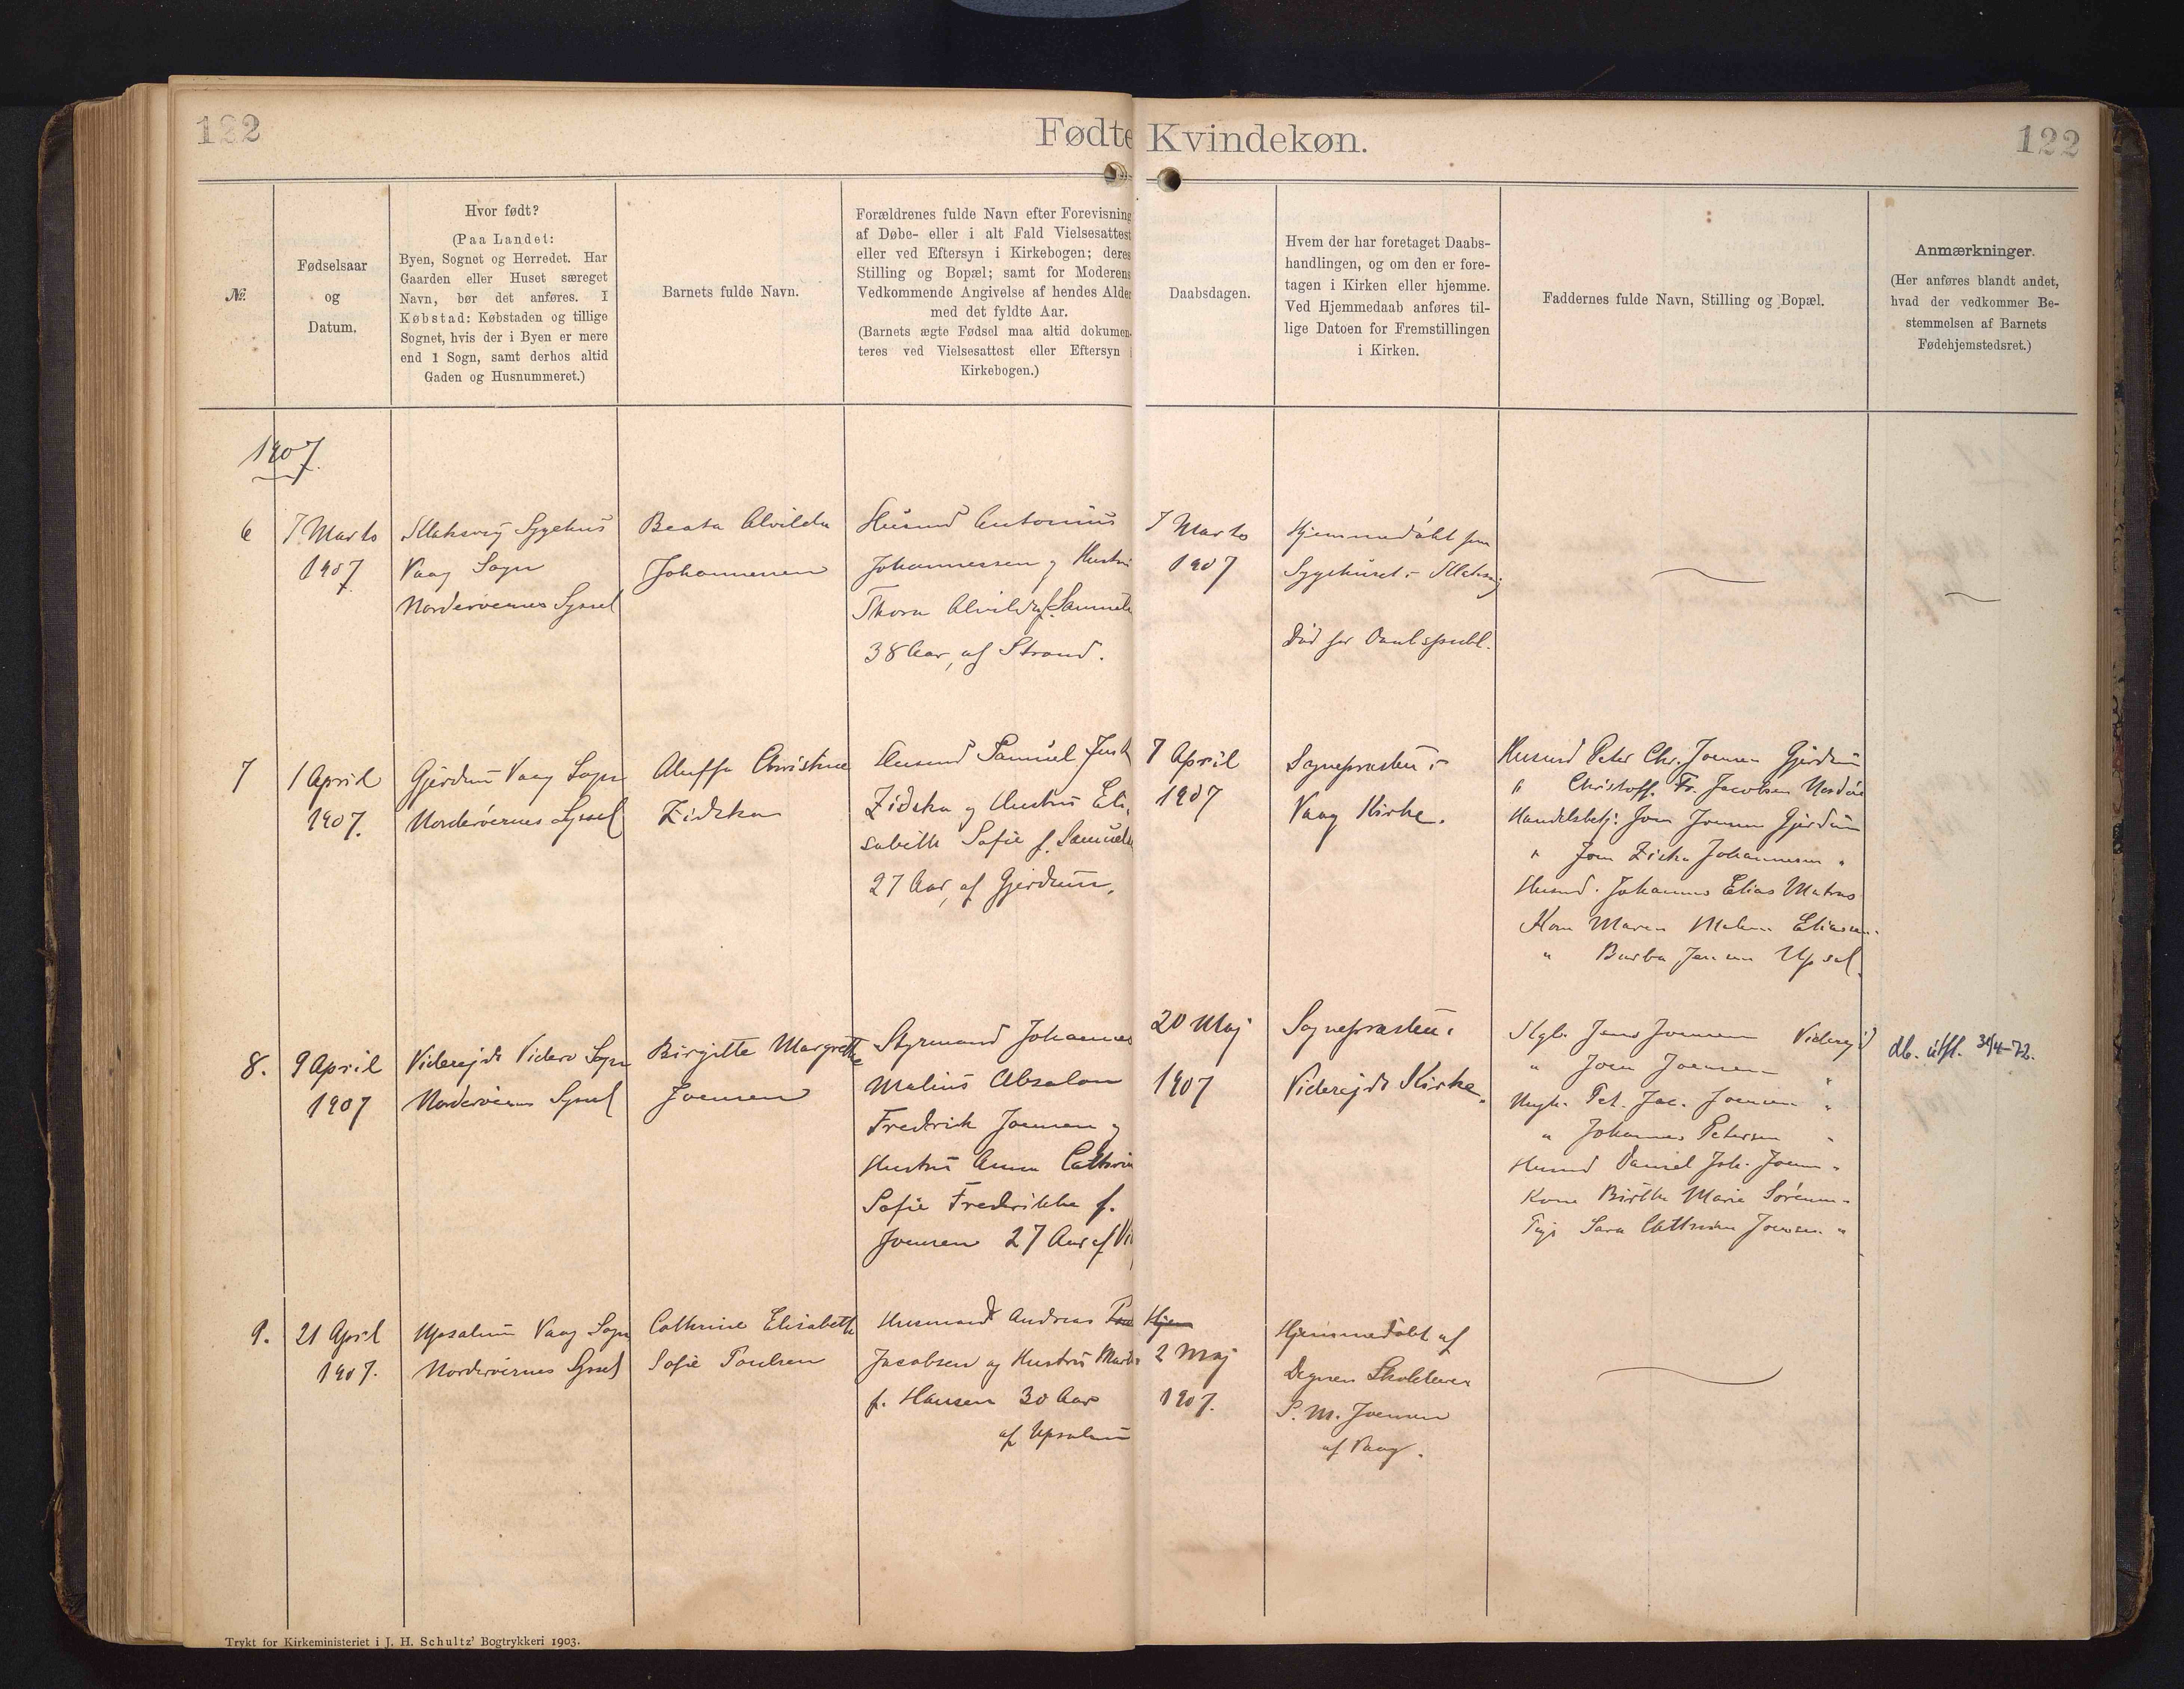 122
Fødte
Kvindekøn.
122
№.
Fødselsaar
og
Datum.
Hvor født?
(Paa Landet:
Byen, Sognet og Herredet. Har
Gaarden eller Huset særeget
Navn, bør det anføres. I
Købstad: Købstaden og tillige
Sognet, hvis der i Byen er mere
end 1 Sogn, samt derhos altid
Gaden og Husnummeret.)
Barnets fulde Navn.
Forældrenes fulde Navn efter Forevisning
af Døbe- eller i alt Fald Vielsesattest
eller ved Eftersyn i Kirkebogen; deres
Stilling og Bopæl; samt for Moderens
Vedkommende Angivelse af hendes Alder
med det fyldte Aar.
(Barnets ægte Fødsel maa altid dokumen-
teres ved Vielsesattest eller Eftersyn i
Kirkebogen.)
Daabsdagen.
Hvem der har foretaget Daabs-
handlingen, og om den er fore-
tagen i Kirken eller hjemme.
Ved Hjemmedaab anføres til-
lige Datoen for Fremstillingen
i Kirken.
Faddernes fulde Navn, Stilling og Bopæl.
Anmærkninger.
(Her anføres blandt andet,
hvad der vedkommer Be-
stemmelsen af Barnets
Fødehjemstedsret.)
1907.
6
7 Marts
1907
Klaksvig Sygehus
Vaag Sogn
Norderøernes Syssel
Beata Alvilda
Johannessen
Husmd Antonius
Johannessen og Hustru
Thora Alvilda f. Samuels
38 Aar, af Strond.
7 Marts
1907
Hjemmedøbt paa
Sygehuset i Klaksvig
Død før Daabspubl.
7
1 April
1907.
Gjerdum Vaag Sogn
Norderøernes Syssel
Christine
Zidska
Husmd Samuel
Zidska og Hustru Eli-
sabeth Sofie f. Samuels
27 Aar, af Gjerdum.
7 April
1907
Sognepræsten i
Vaag Kirke.
Husmd Peter Chr. Joensen Gjerdum
" Christoff. Fr. Jacobsen
Handelsbetj. Joen Joensen Gjerdum
" Joen Ziska Johannesen "
Husmd. Johannes Elias Matras
Kone Maren Malene Eliasen
" Barba Jensen Upsal.
8.
9 April
1907
Viderejde Viderø Sogn
Norderøernes Syssel
Birgitte Margrethe
Joensen
Styrmand Johannes
Malius Absalon
Fredrick Joensen og
Hustru Anna Cathrine
Sofie Fredrikke f.
Joensen 27 Aar af Vi
20 Maj
1907
Sognepræsten i
Viderejde Kirke.
Joensen Viderejd
" Joen Joensen "
Ungk. Pet. Jac. Joensen "
" Johannes Petersen "
Husmd Daniel Joh. Joens "
Kone Birthe Marie Sørensen "
Pige Sara Cathrine Joensen "
db. útfl. 30/4-72.
9.
21 April
1907.
Upsalum Vaag Sogn
Norderøernes Syssel
Cathrine Elisabeth
Sofie Poulsen
Husmand Andreas
Jacobsen og Hustru
f. Hansen 30 Aar
af Upsalum
Hjem
2 Maj
1907.
Hjemmedøbt af
Degnen Skolelærer
P. M. Joensen
af Vaag.
Trykt for Kirkeministeriet i J. H. Schultz' Bogtrykkeri 1903.